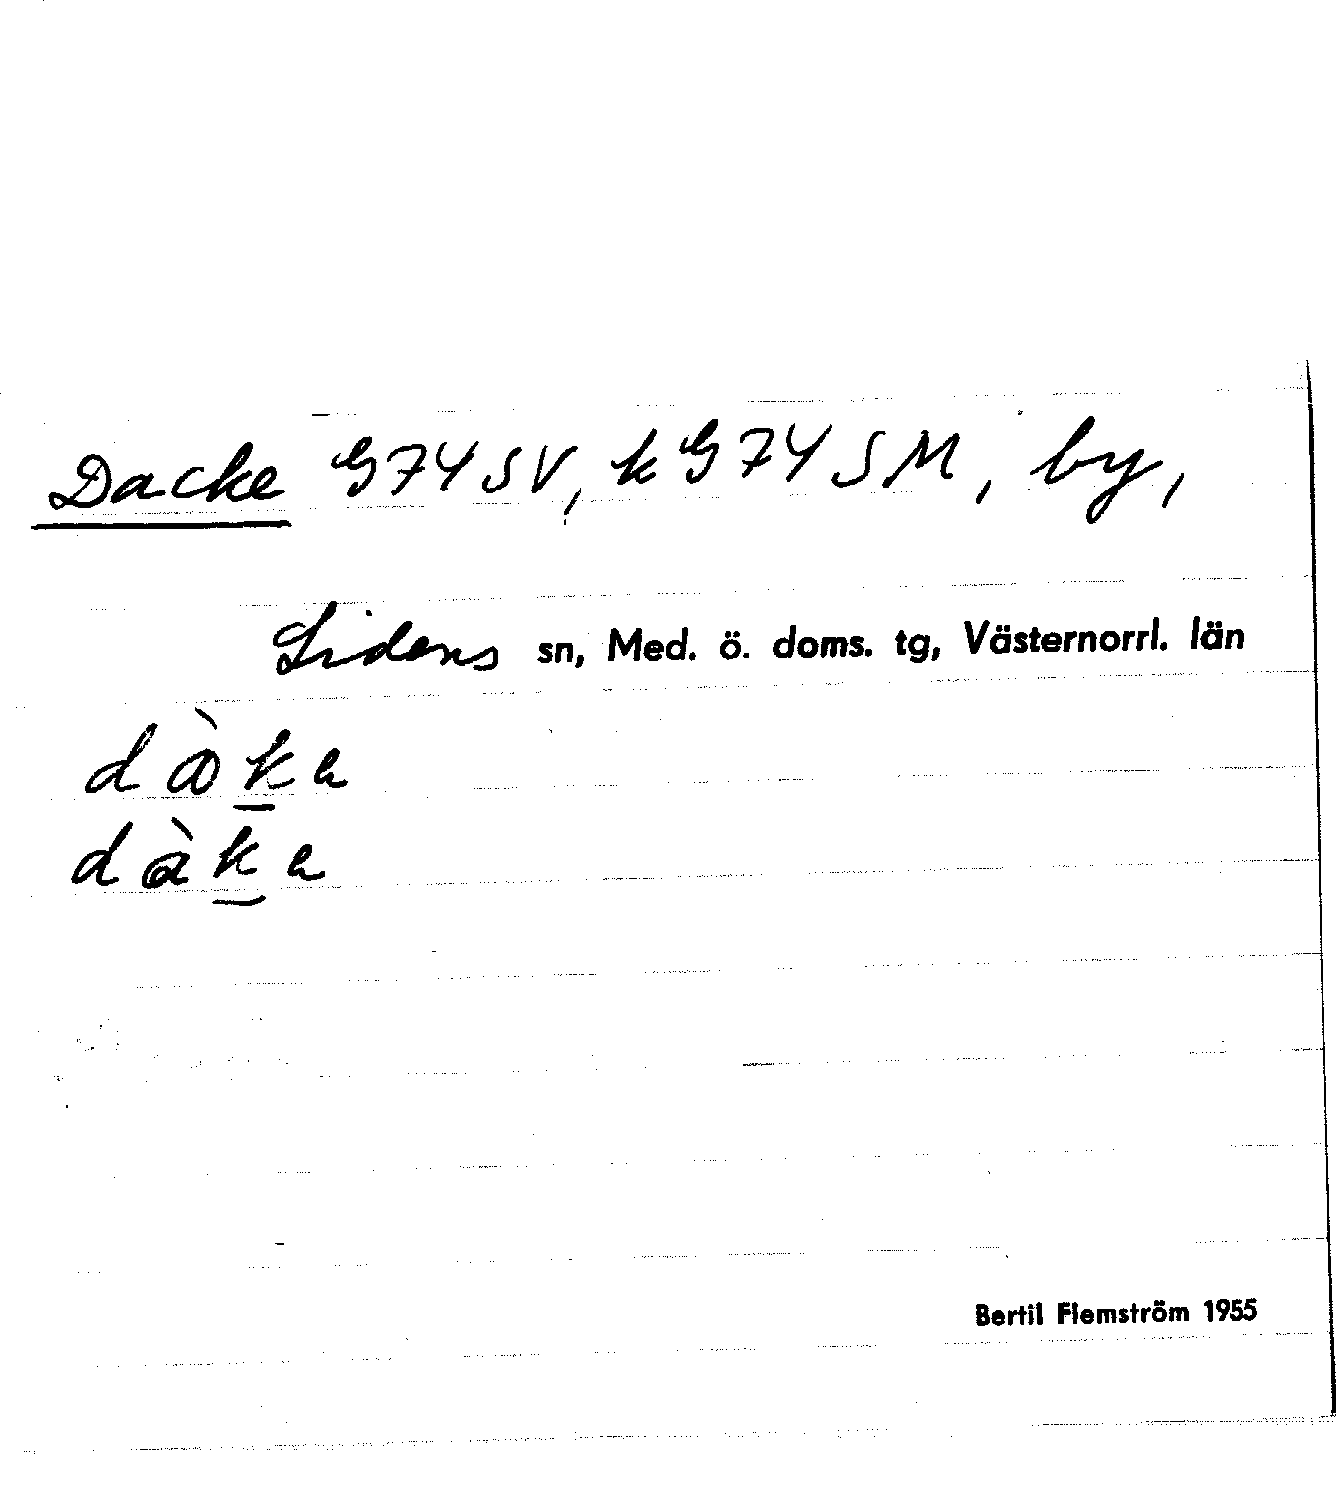 Dacke G74SV, k G74SM, by,
Lidens sn, Med. ö. doms. tg, Västernorrl. län
Bertil Flemström 1955